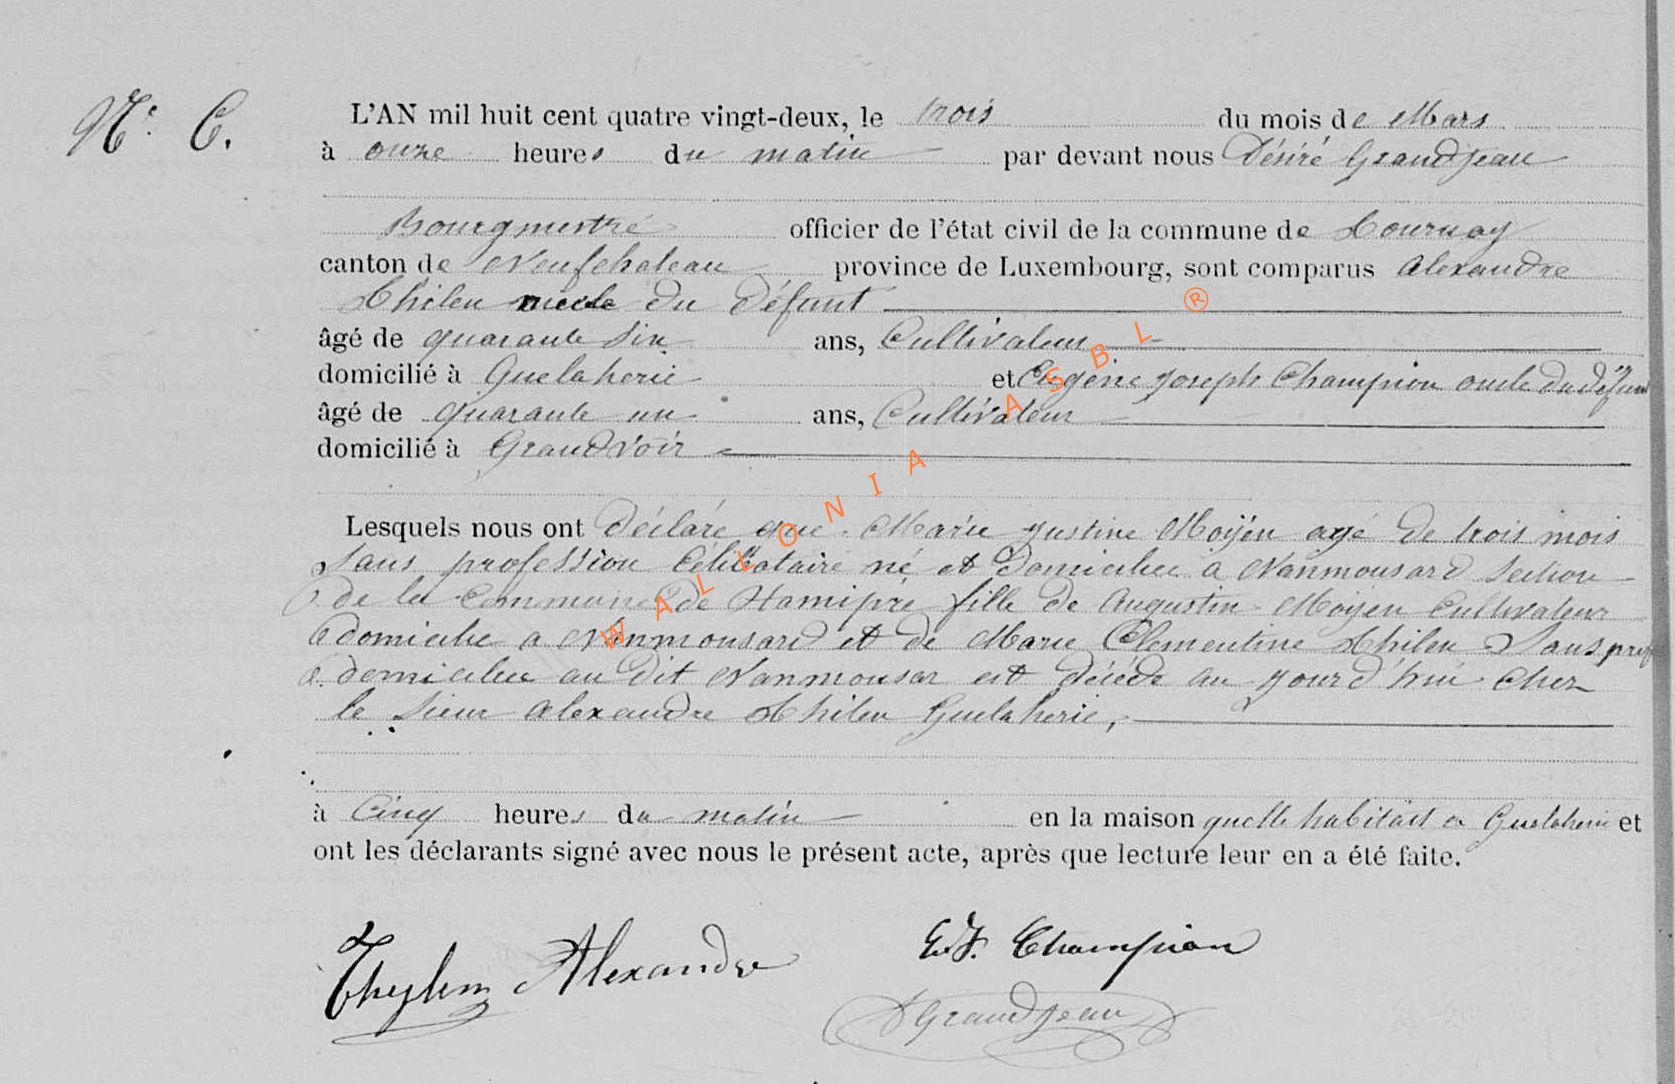 N° 6.
L'AN mil huit cent quatre vingt-deux, le trois du mois de Mars
à onze heures du matin par devant nous Désiré Grandjean
Bourgmestre officier de l'état civil de la commune de Tournay
canton de Neufchateau province de Luxembourg, sont comparus Alexandre
Thilen oncle du défunt
âgé de quarante six ans, Cultivateur
domicilié à Guelaherie et Eugène Joseph Champion oncle du défunt
âgé de quarante un ans, Cultivateur
domicilié à Grandvoir
Lesquels nous ont déclaré que Marie Justine Moÿen agé de trois mois
sans profession célibataire né et domiciliée à Nanmousard section
de la commune de Hamipré fille de Augustin Moÿen Cultivateur
domicilie a Nanmousard et de Marie Clementine Thilen Sans prof
domiciliee au dit Nanmousar est décéde au jourd'hui cher
le sieur Alexandre Thilen Guelaherie,
à Cinq heures du matin en la maison quelle habitait a Guelaherie et
ont les déclarants signé avec nous le présent acte, après que lecture leur en a été faite.
Thylen Alexandre E.J. Champion
D Grandjean
WALLONIA ASBL ®